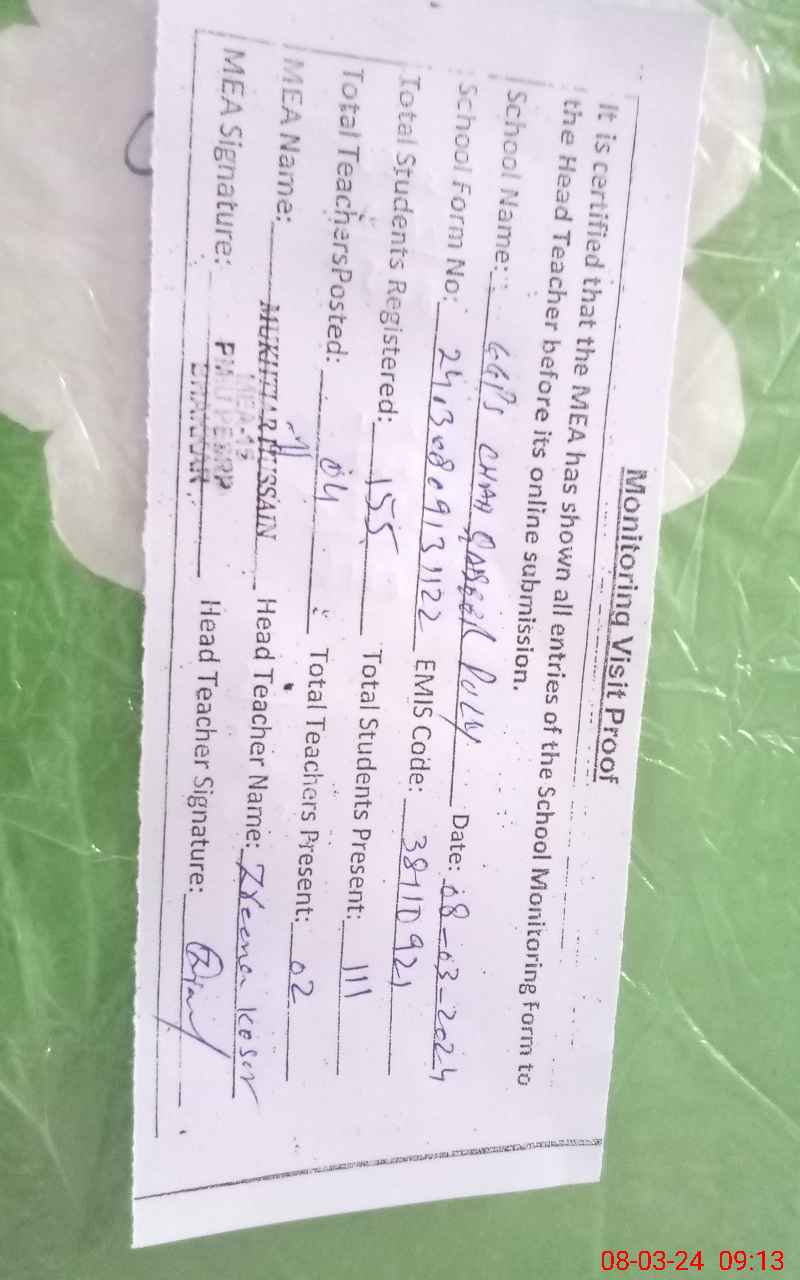 Monitoring Visit Proof
It is certified that the MEA has shown all entries of the School Monitoring Form to
the Head Teacher before its online submission.
School Name: GGPS CHAH Date: 08-03-2024
School Form No: EMIS Code: 38110921
Total Students Registered: 155 Total Students Present: 111
Total Teachers Posted: 04 Total Teachers Present: 02
MEA Name: MUKHTIAR HUSSAIN Head Teacher Name:
MEA Signature: Head Teacher Signature:
MEA-15
BHAKKAR
08-03-24 09:13